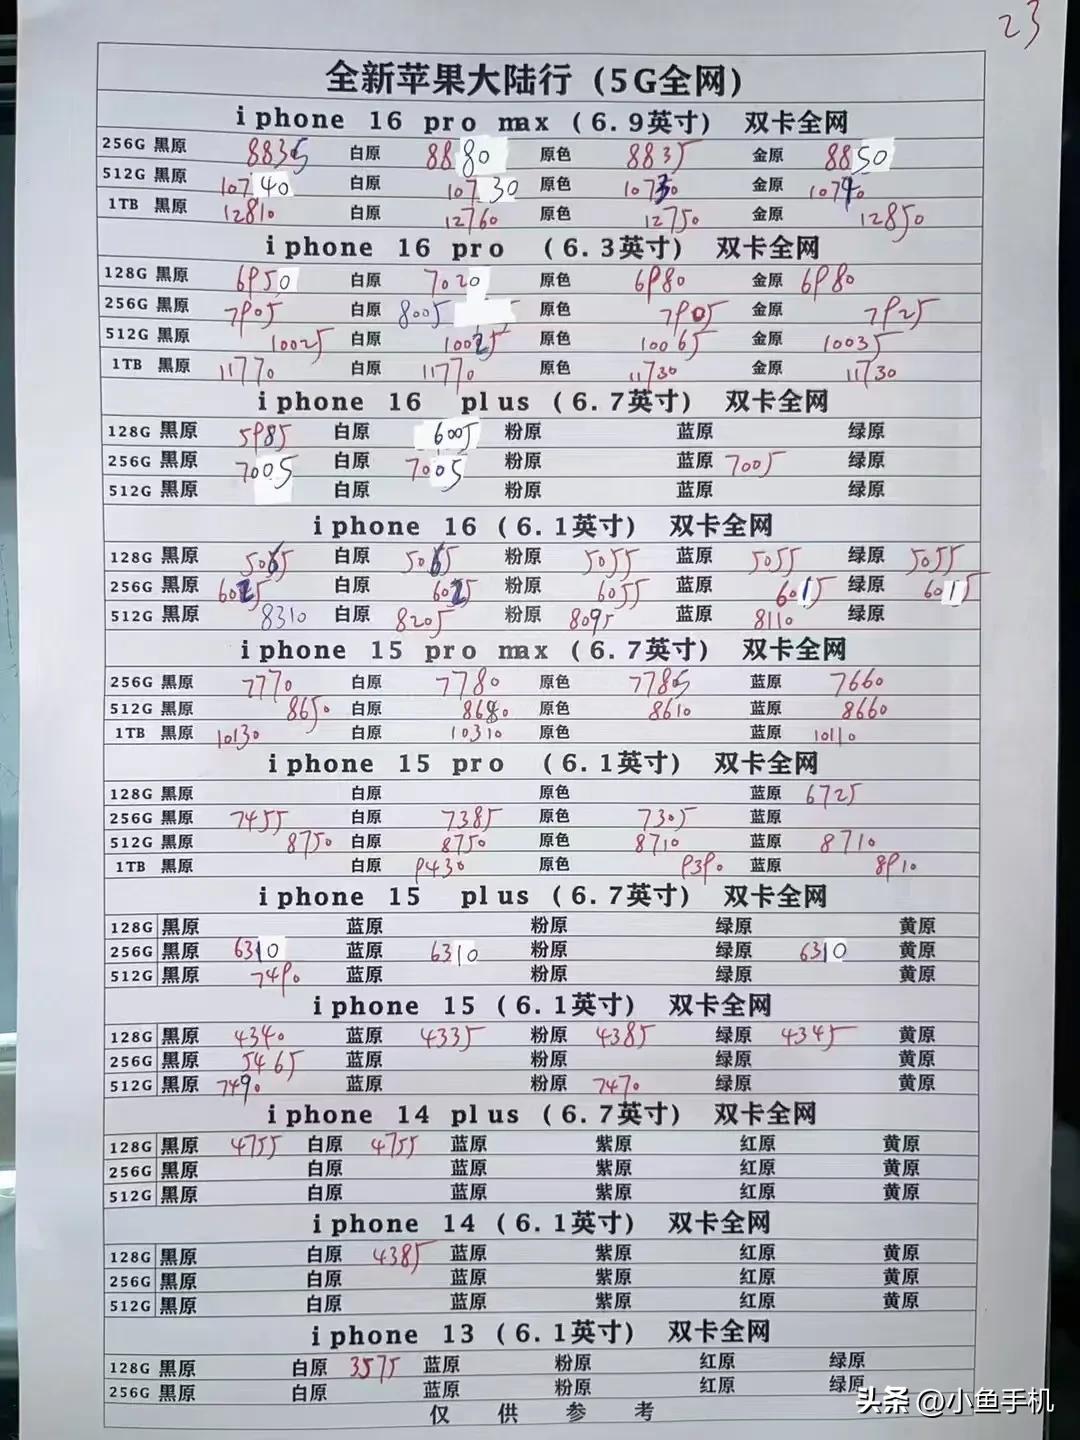 23
全新苹果大陆行（5G全网）
iphone 16 pro max（6.9英寸） 双卡全网
256G 黑原 8835 白原 8880 原色 8835 金原 8850
512G 黑原 10740 白原 10730 原色 10730 金原 10740
1TB 黑原 12810 白原 12760 原色 12750 金原 12850
iphone 16 pro （6.3英寸） 双卡全网
128G 黑原 6950 白原 7020 原色 6980 金原 6980
256G 黑原 7905 白原 8005 原色 7905 金原 7925
512G 黑原 10025 白原 10025 原色 10065 金原 10035
1TB 黑原 11770 白原 11770 原色 11730 金原 11730
iphone 16 plus（6.7英寸） 双卡全网
128G 黑原 5985 白原 6005 粉原 蓝原 绿原
256G 黑原 7005 白原 7005 粉原 蓝原 7005 绿原
512G 黑原 白原 粉原 蓝原 绿原
iphone 16（6.1英寸） 双卡全网
128G 黑原 5065 白原 5065 粉原 5055 蓝原 5055 绿原 5055
256G 黑原 6025 白原 6025 粉原 6055 蓝原 6015 绿原 6015
512G 黑原 8310 白原 8205 粉原 8095 蓝原 8110 绿原
iphone 15 pro max（6.7英寸） 双卡全网
256G 黑原 7770 白原 7780 原色 7785 蓝原 7660
512G 黑原 8650 白原 8680 原色 8610 蓝原 8660
1TB 黑原 10130 白原 10310 原色 蓝原 10110
iphone 15 pro （6.1英寸） 双卡全网
128G 黑原 白原 原色 蓝原 6725
256G 黑原 7455 白原 7385 原色 7305 蓝原
512G 黑原 8750 白原 8750 原色 8710 蓝原 8710
1TB 黑原 白原 9430 原色 9390 蓝原 8910
iphone 15 plus（6.7英寸） 双卡全网
128G 黑原 蓝原 粉原 绿原 黄原
256G 黑原 6310 蓝原 6310 粉原 绿原 6310 黄原
512G 黑原 7490 蓝原 粉原 绿原 黄原
iphone 15（6.1英寸） 双卡全网
128G 黑原 4340 蓝原 4335 粉原 4385 绿原 4345 黄原
256G 黑原 5465 蓝原 粉原 绿原 黄原
512G 黑原 7490 蓝原 粉原 7470 绿原 黄原
iphone 14 plus（6.7英寸） 双卡全网
128G 黑原 4755 白原 4755 蓝原 紫原 红原 黄原
256G 黑原 白原 蓝原 紫原 红原 黄原
512G 黑原 白原 蓝原 紫原 红原 黄原
iphone 14（6.1英寸） 双卡全网
128G 黑原 白原 4385 蓝原 紫原 红原 黄原
256G 黑原 白原 蓝原 紫原 红原 黄原
512G 黑原 白原 蓝原 紫原 红原 黄原
iphone 13（6.1英寸） 双卡全网
128G 黑原 白原 3575 蓝原 粉原 红原 绿原
256G 黑原 白原 蓝原 粉原 红原 绿原
仅供参考
头条 @小鱼手机